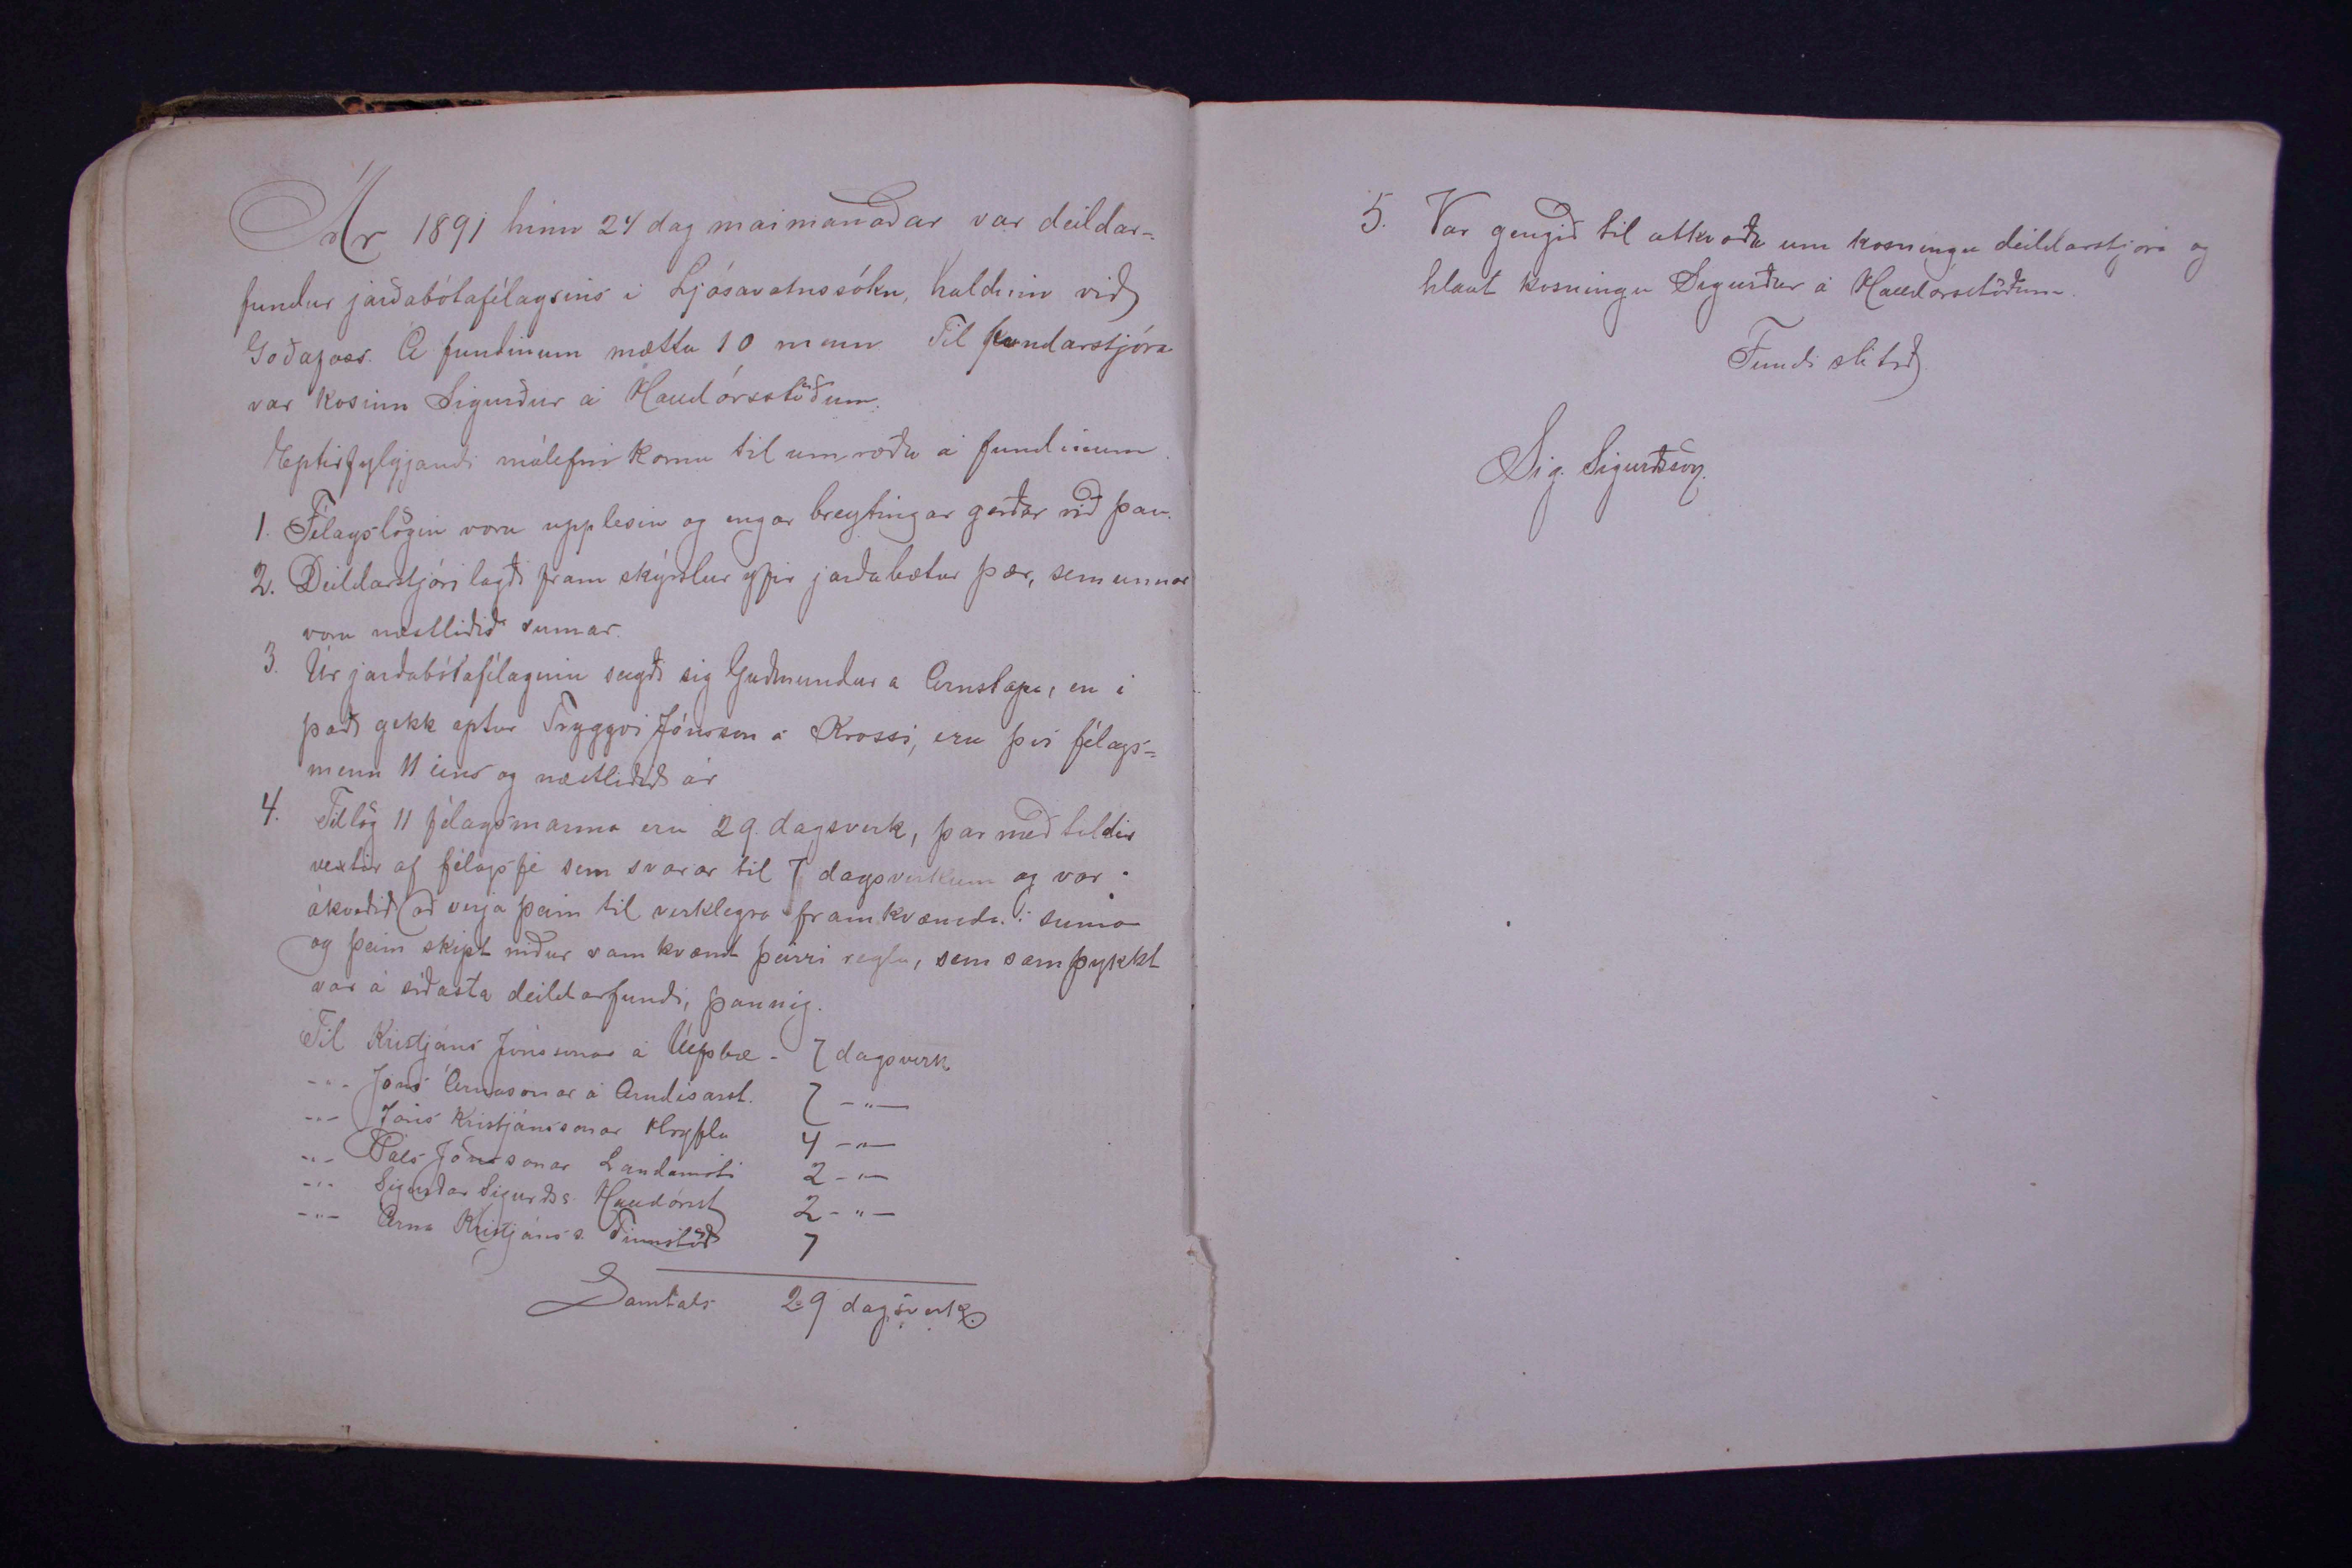 Ár 1891 hinn 24 dag maimánaðar var deildar-
fundur jarðabótafélagsins i Ljósavatnssókn, haldinn við
Goðafoss. Á fundinum mættu 10 menn Til fundarstjóra
var kosinn Sigurður á Halldórsstöðum.
Eptirfylgjandi málefni komu til umræðu á fundinum.
1. Félagslögin voru upplesin og engar breytingar gerðar við þau.
2. Deildarstjóri lagði fram skýrslur yfir jarðabætur þær, sem unnar
voru næstliðið sumar.
3. Úr jarðabótafélaginu sagði sig Guðmundur á Arnstapa, en i
það gekk aptur Tryggvi Jónsson á Krossi, eru því félags-
menn 11 eins og næstliðið ár
4. Tillög 11 félagsmanna eru 29 dagsverk, þar með taldir
vextir af félagsfé sem svarar til 7 dagsverkum og var
ákveðið að verja þeim til verklegra framkvæmda i sumar
og þeim skipt niður samkvæmt þeirri reglu, sem samþykkt
var á síðasta deildarfundi, þannig.
Til Kristjáns Jónssonar á Úlfsbæ - 7 dagsverk
-„- Jóns Árnasonar á Arndísarst. 7 -„-
-„- Jóns Kristjánssonar Hryflu 4 -„-
-„- Páls Jónssonar Landamóti 2 -„-
-„- Sigurðar Sigurðss. Halldórsst 2 -„-
-„- Árna Kristjánss. Finnsstöð 7
Samtals 29 dagsverk.
5. Var gengið til atkvæða um kosningu deildarstjóra og
hlaut kosningu Sigurður á Halldórsstöðum.
Fundi slitið.
Sig. Sigurðsson.